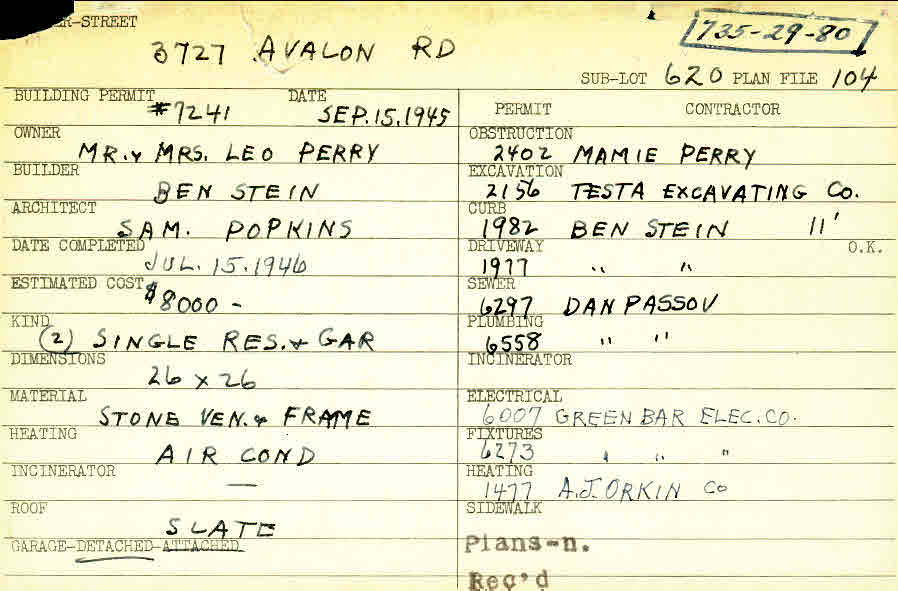 ER-STREET
3727 AVALON RD
735-29-80
SUB-LOT 620 PLAN FILE 104
BUILDING PERMIT #7241 DATE SEP. 15. 1945
OWNER MR. & MRS. LEO PERRY
BUILDER BEN STEIN
ARCHITECT SAM. POPKINS
DATE COMPLETED JUL. 15. 1946
ESTIMATED COST $8000 -
KIND (2) SINGLE RES. & GAR
DIMENSIONS 26 x 26
MATERIAL STONE VEN. & FRAME
HEATING AIR COND
INCINERATOR —
ROOF SLATE
GARAGE-DETACHED-ATTACHED
PERMIT CONTRACTOR
OBSTRUCTION 2402 MAMIE PERRY
EXCAVATION 2156 TESTA EXCAVATING CO.
CURB 1982 BEN STEIN 11'
DRIVEWAY 1977 " " O.K.
SEWER 6297 DAN PASSOV
PLUMBING 6558 " "
INCINERATOR
ELECTRICAL 6007 GREEN BAR ELEC. CO.
FIXTURES 6273 " " "
HEATING 1477 A.J. ORKIN CO
SIDEWALK
Plans-n.
Rec'd